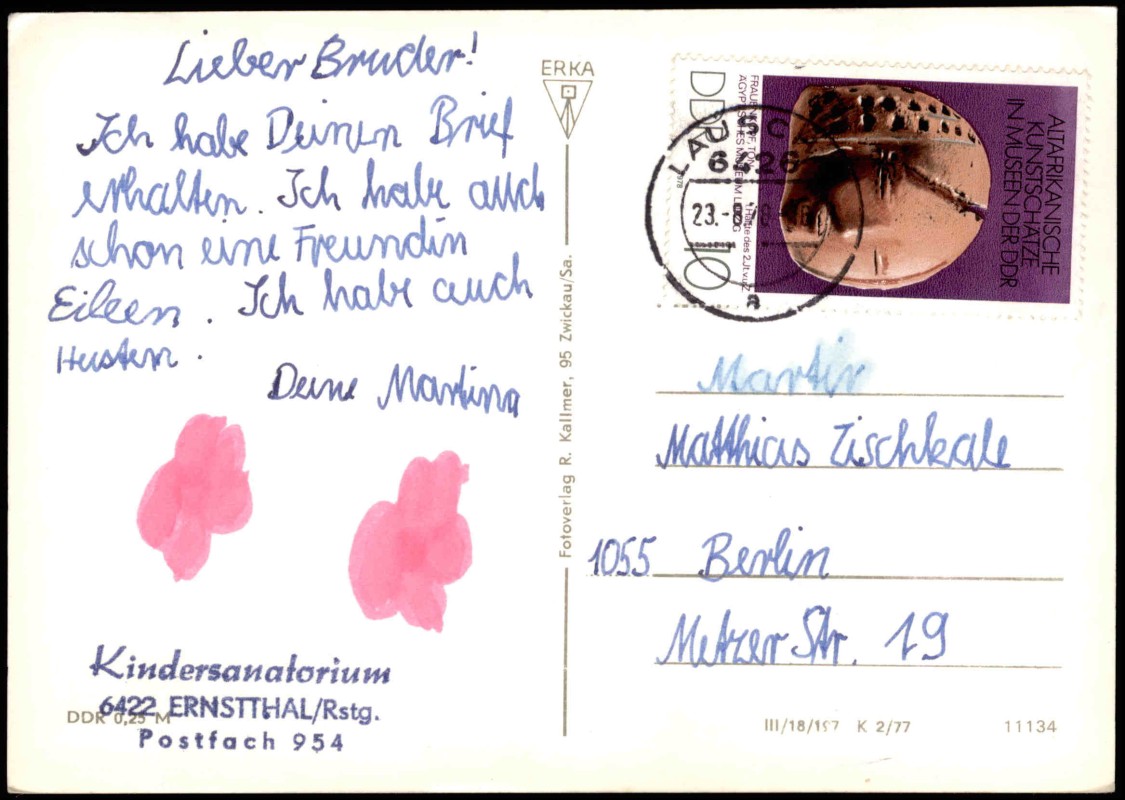 Lieber Bruder!
Ich habe Deinen Brief
erhalten. Ich habe auch
schon eine Freundin
Eileen. Ich habe auch
Husten.
Deine Martina
Kindersanatorium
6422 ERNSTTHAL/Rstg.
Postfach 954
DDR 0,25 M
ERKA
Fotoverlag R. Kallmer, 95 Zwickau/Sa.
ALTAFRIKANISCHE
KUNSTSCHÄTZE
IN MUSEEN DER DDR
DDR
10
1978
6426
23.
a
Martin
Matthias Zischkale
1055 Berlin
Metzer Str. 19
III/18/197 K 2/77
11134